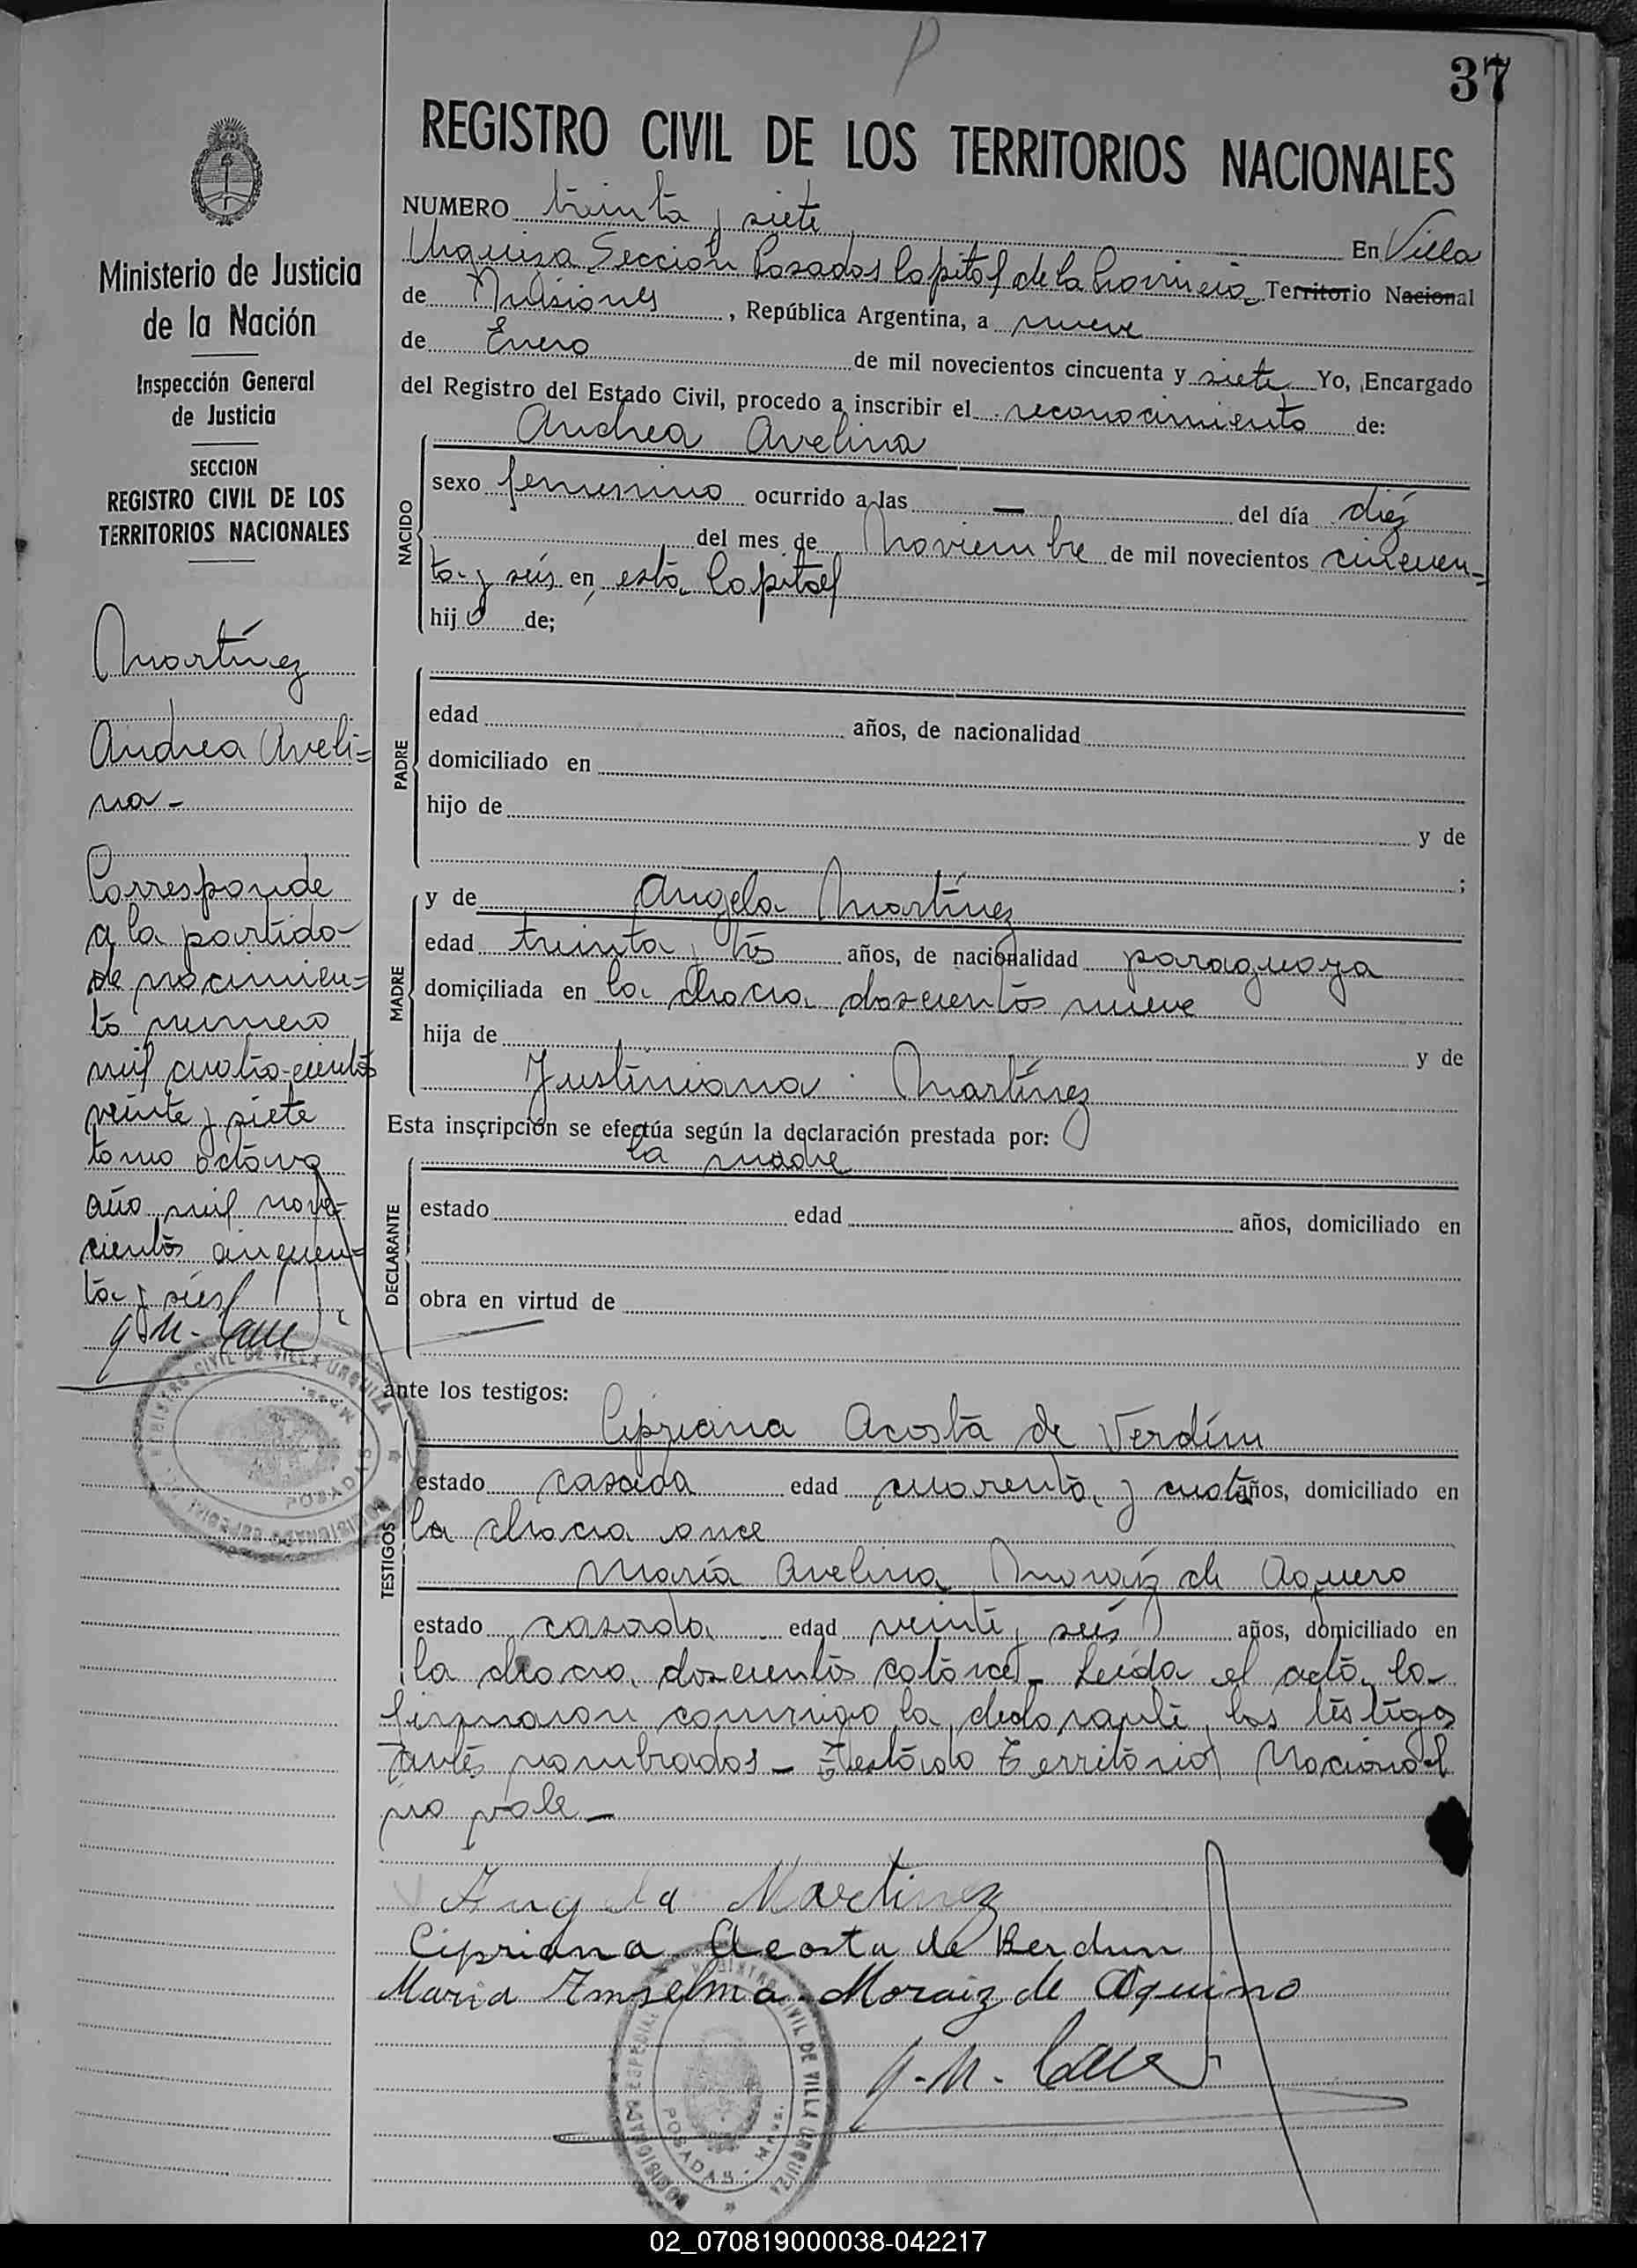 37
REGISTRO CIVIL DE LOS TERRITORIOS NACIONALES
Ministerio de Justicia
de la Nación
Inspección General
de Justicia
SECCION
REGISTRO CIVIL DE LOS
TERRITORIOS NACIONALES
Martínez
Andrea Aveli=
na-
Corresponde
a la partida
de nacimien=
to numero
mil cuatrocientos
veinte y siete
tomo octavo
año mil nove-
cientos cincuen=
ta y seis
NUMERO treinta y siete En Villa
Urquiza Sección Posadas Capital de la Provincia Territorio Nacional
de Misiones, República Argentina, a nueve
de Enero de mil novecientos cincuenta y siete Yo, Encargado
del Registro del Estado Civil, procedo a inscribir el reconocimiento de:
Andrea Avelina
NACIDO
sexo femenino ocurrido a las — del día diéz
del mes de Noviembre de mil novecientos cincuen=
ta y seis en esta Capital
hija de;
PADRE
edad años, de nacionalidad
domiciliado en
hijo de y de
;
MADRE
y de Angela Martínez
edad treinta y tres años, de nacionalidad paraguaya
domiciliada en la chacra doscientos nueve
hija de y de
Justiniana Martínez
Esta inscripción se efectúa según la declaración prestada por:
la madre
DECLARANTE
estado edad años, domiciliado en
obra en virtud de
ante los testigos:
TESTIGOS
Cipriana Acosta de Verdún
estado casada edad cuarenta y cuatro años, domiciliado en
la chacra once
María Avelina Moraiz de Aquero
estado casada edad veinte y seis años, domiciliado en
la chacra doscientos catorce- Leida el acta la
firmaron conmigo la declarante y los testigos
antes nombrados- Testado Territorio Nacional
no vale-
Angela Martinez
Cipriana Acosta de Berdun
Maria Amselma Moraiz de Aquino
REGISTRO CIVIL DE VILLA URQUIZA
POSADAS
REGISTRO CIVIL DE VILLA URQUIZA
POSADAS - Mnes.
02_070819000038-042217